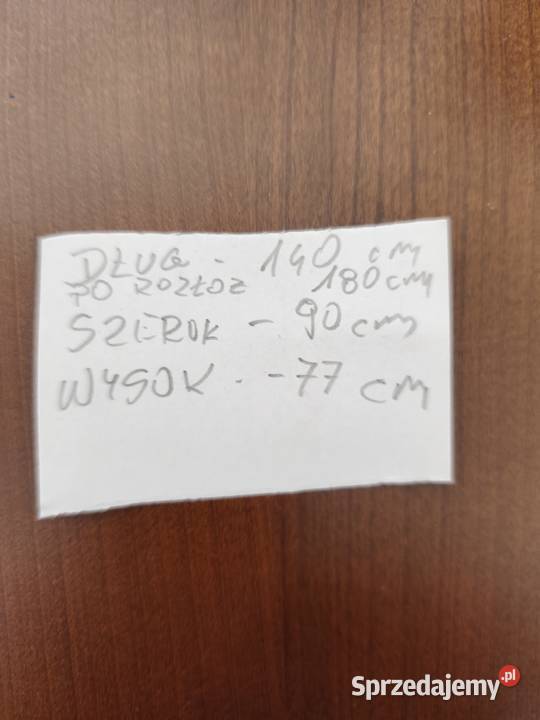 DŁUG - 140 cm
PO ROZŁOŻ 180 cm
SZEROK - 90 cm
WYSOK. - 77 cm
Sprzedajemy.pl